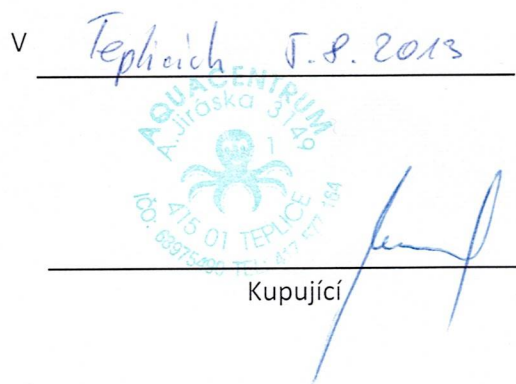 V Teplicích 5.8.2013
AQUACENTRUM
A.Jiráska 3149
1
415 01 TEPLICE
IČO: 63975
TEL: 417 577
Kupující